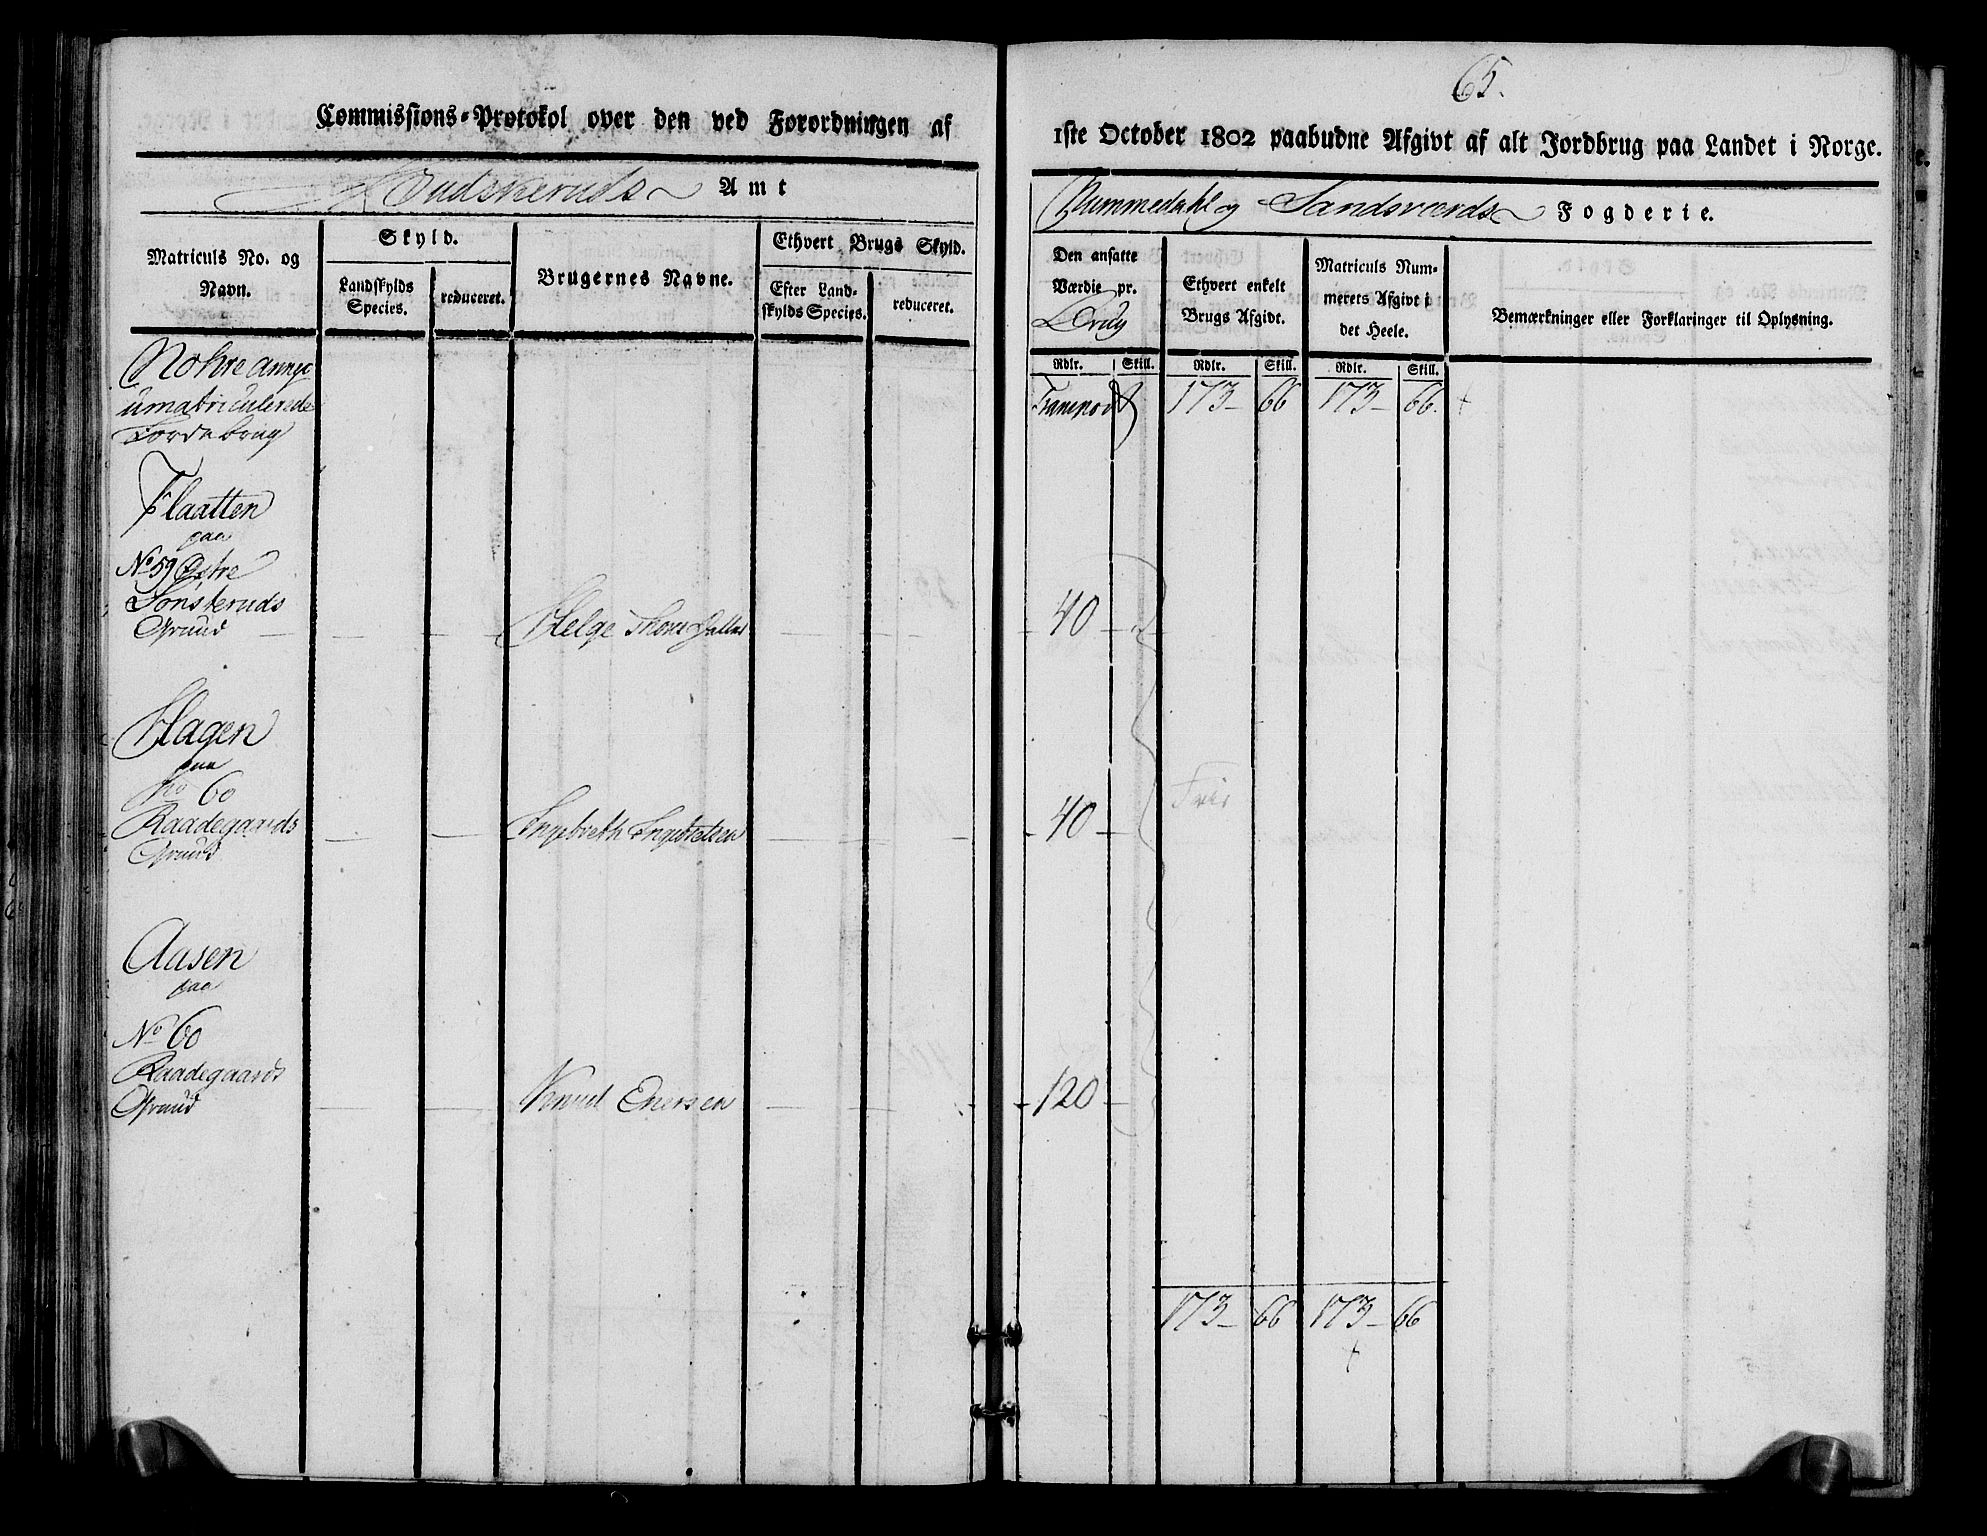 65.
Commissions-Protokol over den ved Forordningen af
1ste October 1802 paabudne Afgivt af alt Jordbrug paa Landet i Norge.
Budskeruds Amt
Nummedahl og Sandsværds Fogderie.
Matriculs No. og Navn.
Skyld.
Landskylds Species.
reduceret.
Brugernes Navne.
Ethvert Brugs Skyld.
Efter Landskylds Species.
reduceret.
Den ansatte Værdie pr.
Ethvert enkelt Brugs Afgivt.
Matriculs Nummerets Afgivt i det Heele.
Bemærkninger eller Forklaringer til Oplysning.
Rdlr. Skill. Rdlr. Skill. Rdlr. Skill.
umatriculerede
Transport 173 - 66 173 - 66.
Flaatten
paa
No 59 Østre
Sønsteruds
Grund
Helge
40
Hagen
paa
No 60
Raadegaards
Grund
Ingebreth Ingebretsen
40
Frie
Aasen
paa
No 60
Raadegaards
Grund
Knud Enersen
120
173 - 66 173 - 66